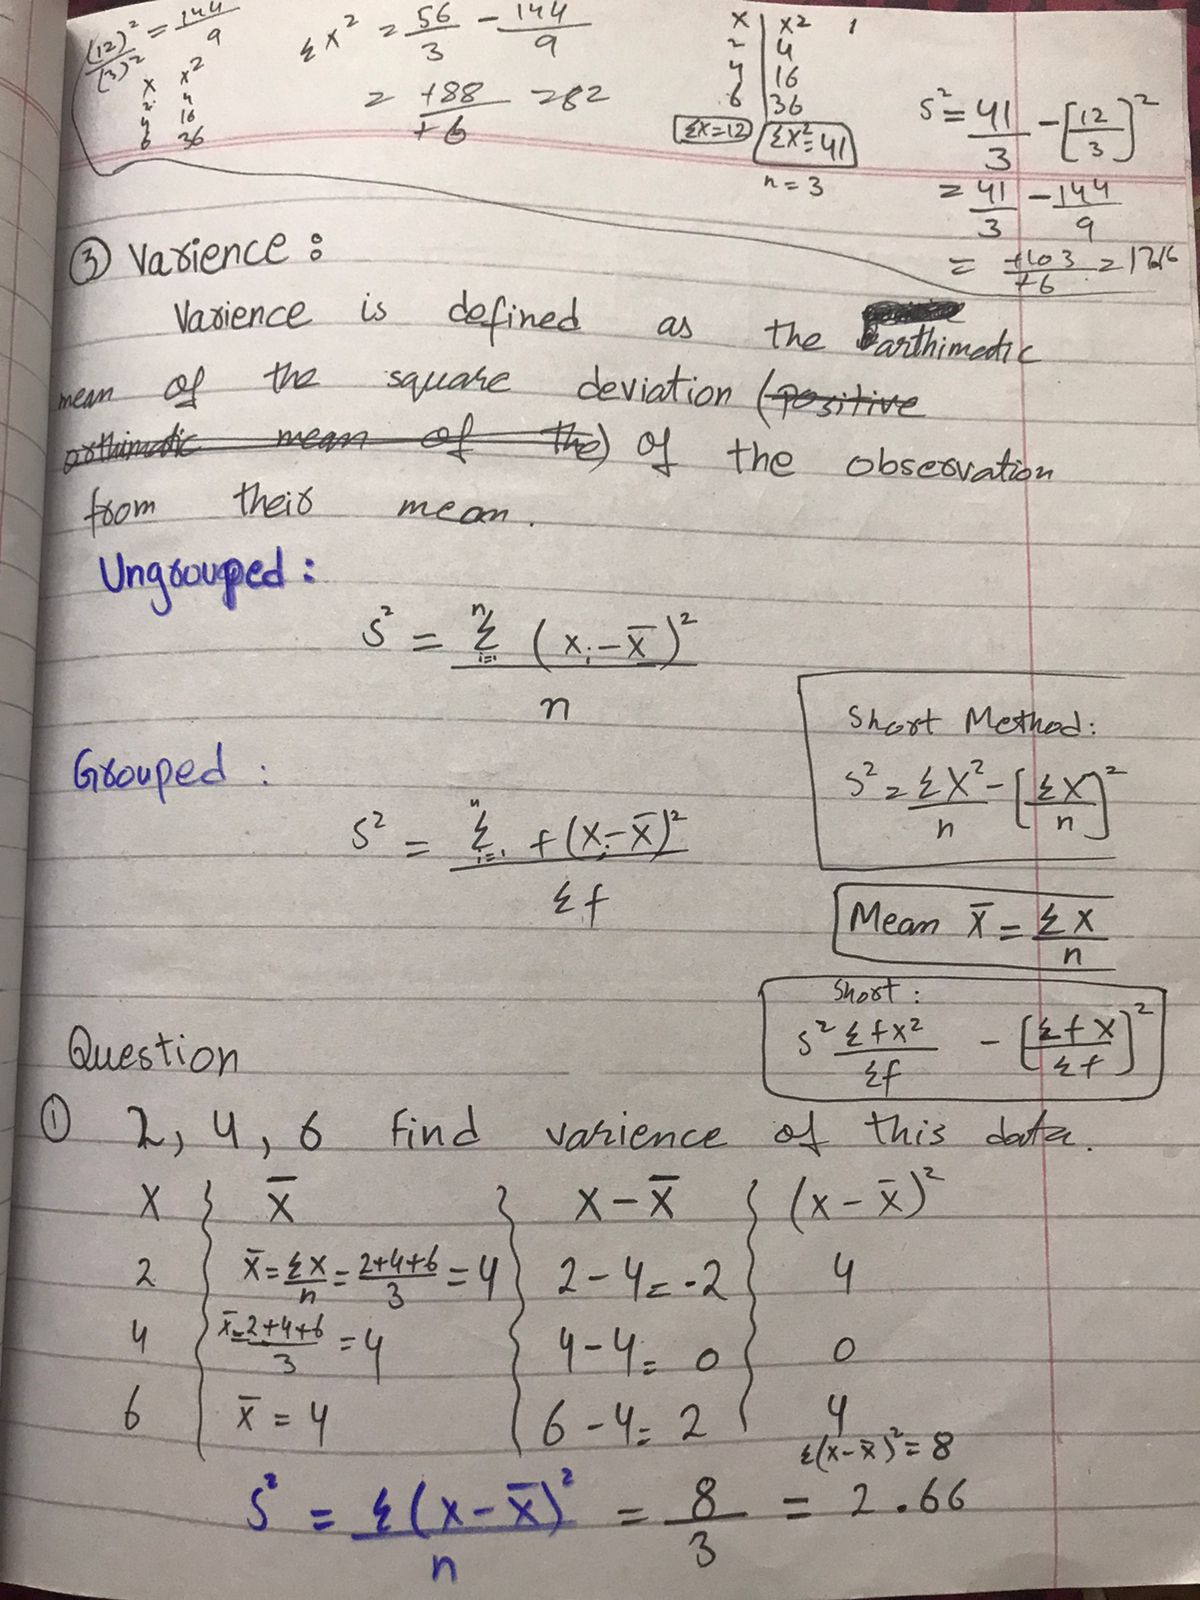 (12)²/(3)² = 144/9
x x²
2 4
4 16
6 36
Σx² = 56/3 − 144/9
= +88/+6 = 82
x | x²
2 | 4
4 | 16
6 | 36
Σx=12 Σx²=41
n = 3
S² = 41/3 − [12/3]²
= 41/3 − 144/9
= +103/+6 =
③ Varience :
Varience is defined as the arthimedic
mean of the square deviation (positive
arthimadic mean of the) of the observation
from their mean.
Ungrouped :
S² = Σ (xᵢ − x̄)² / n
n
i=1
Short Method:
S² = Σx²/n − [Σx/n]²
Grouped :
S² = Σ f(xᵢ − x̄)² / Σf
n
i=1
Mean x̄ = Σx/n
Short :
S² Σfx²/Σf − [Σfx/Σf]²
Question
① 2, 4, 6 find varience of this data.
x x̄ x − x̄ (x − x̄)²
2 x̄ = Σx/n = 2+4+6/3 = 4 2 − 4 = -2 4
4 x̄ = 2+4+6/3 = 4 4 − 4 = 0 0
6 x̄ = 4 6 − 4 = 2 4
Σ(x − x̄)² = 8
S² = Σ(x − x̄)²/n = 8/3 = 2.66